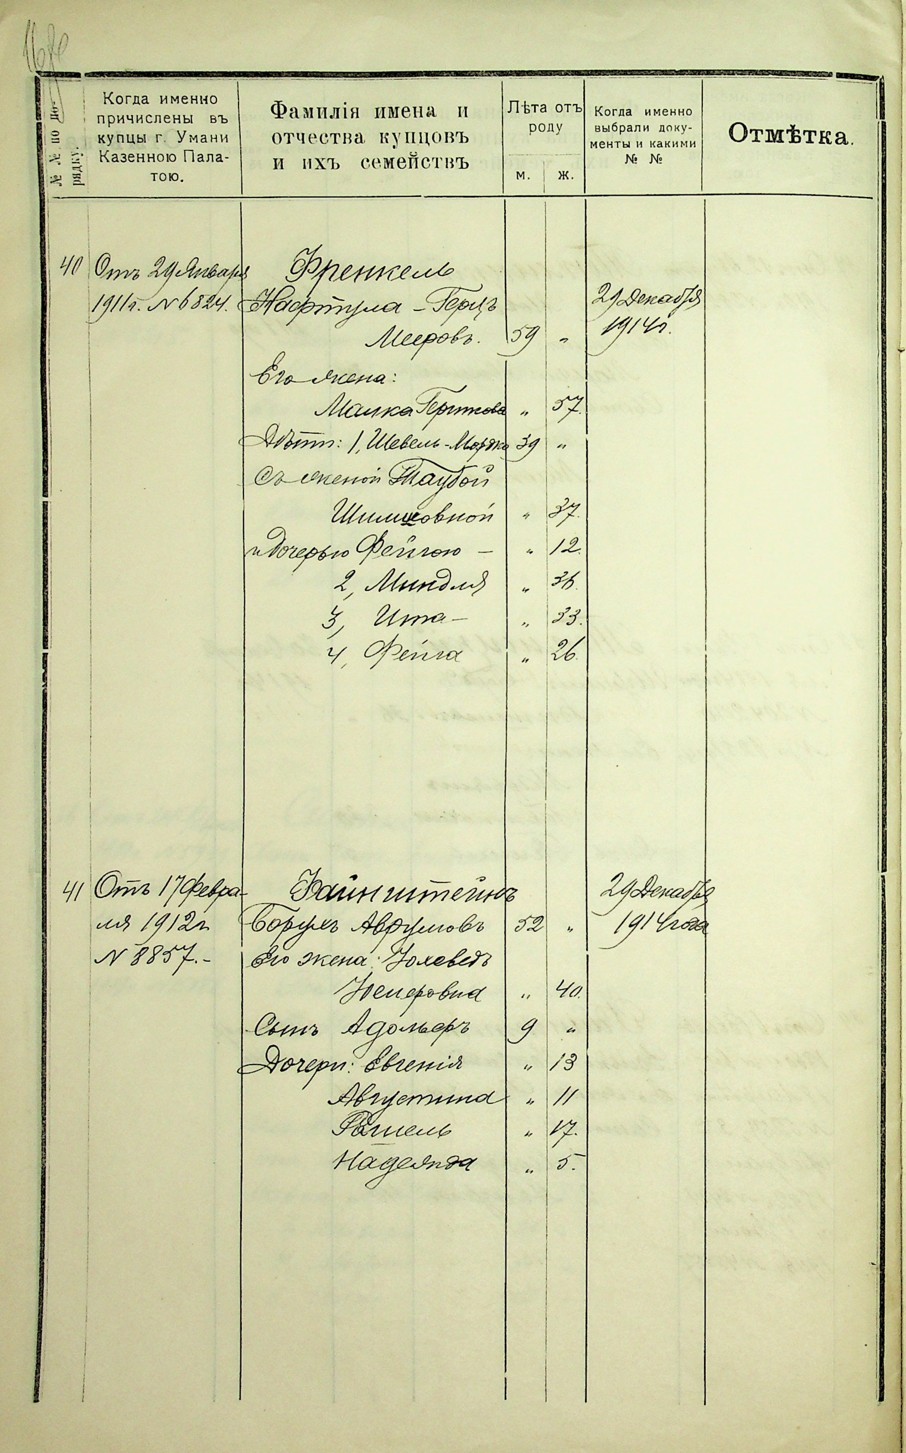 № № по по-
рядку.
Когда именно
причислены въ
купцы г. Умани
Казенною Пала-
тою.
Фамилія имена и
отчества купцовъ
и ихъ семействъ
Лѣта отъ
роду
м. ж.
Когда именно
выбрали доку-
менты и какими
№ №
Отмѣтка.
40 Отъ 29 Января Френкель
1911 г. № 6824. Нафтула - Герцъ 29 Декабря
Мееровъ. 59 „ 1914 г.
Его жена:
Малка Гершкова „ 57
Дѣти: 1, Шевель-Мордко 39 „
Съ женой Таубой
Шлимовной „ 37.
и Дочерью Фейгою — „ 12.
2, Миндля „ 36.
3, Ита — „ 33.
4, Фейга „ 26.
41 Отъ 17 Февра- Файнштейнъ 29 Декабря
ля 1912 г. Борухъ Аврумовъ 52 „ 1914 года
№ 8857.- Его жена: Іохеведъ
„ 40.
Сынъ Адольфъ 9 „
Дочери: Евгенія „ 13
Августина „ 11
Рашель „ 17.
Надежда „ 5.